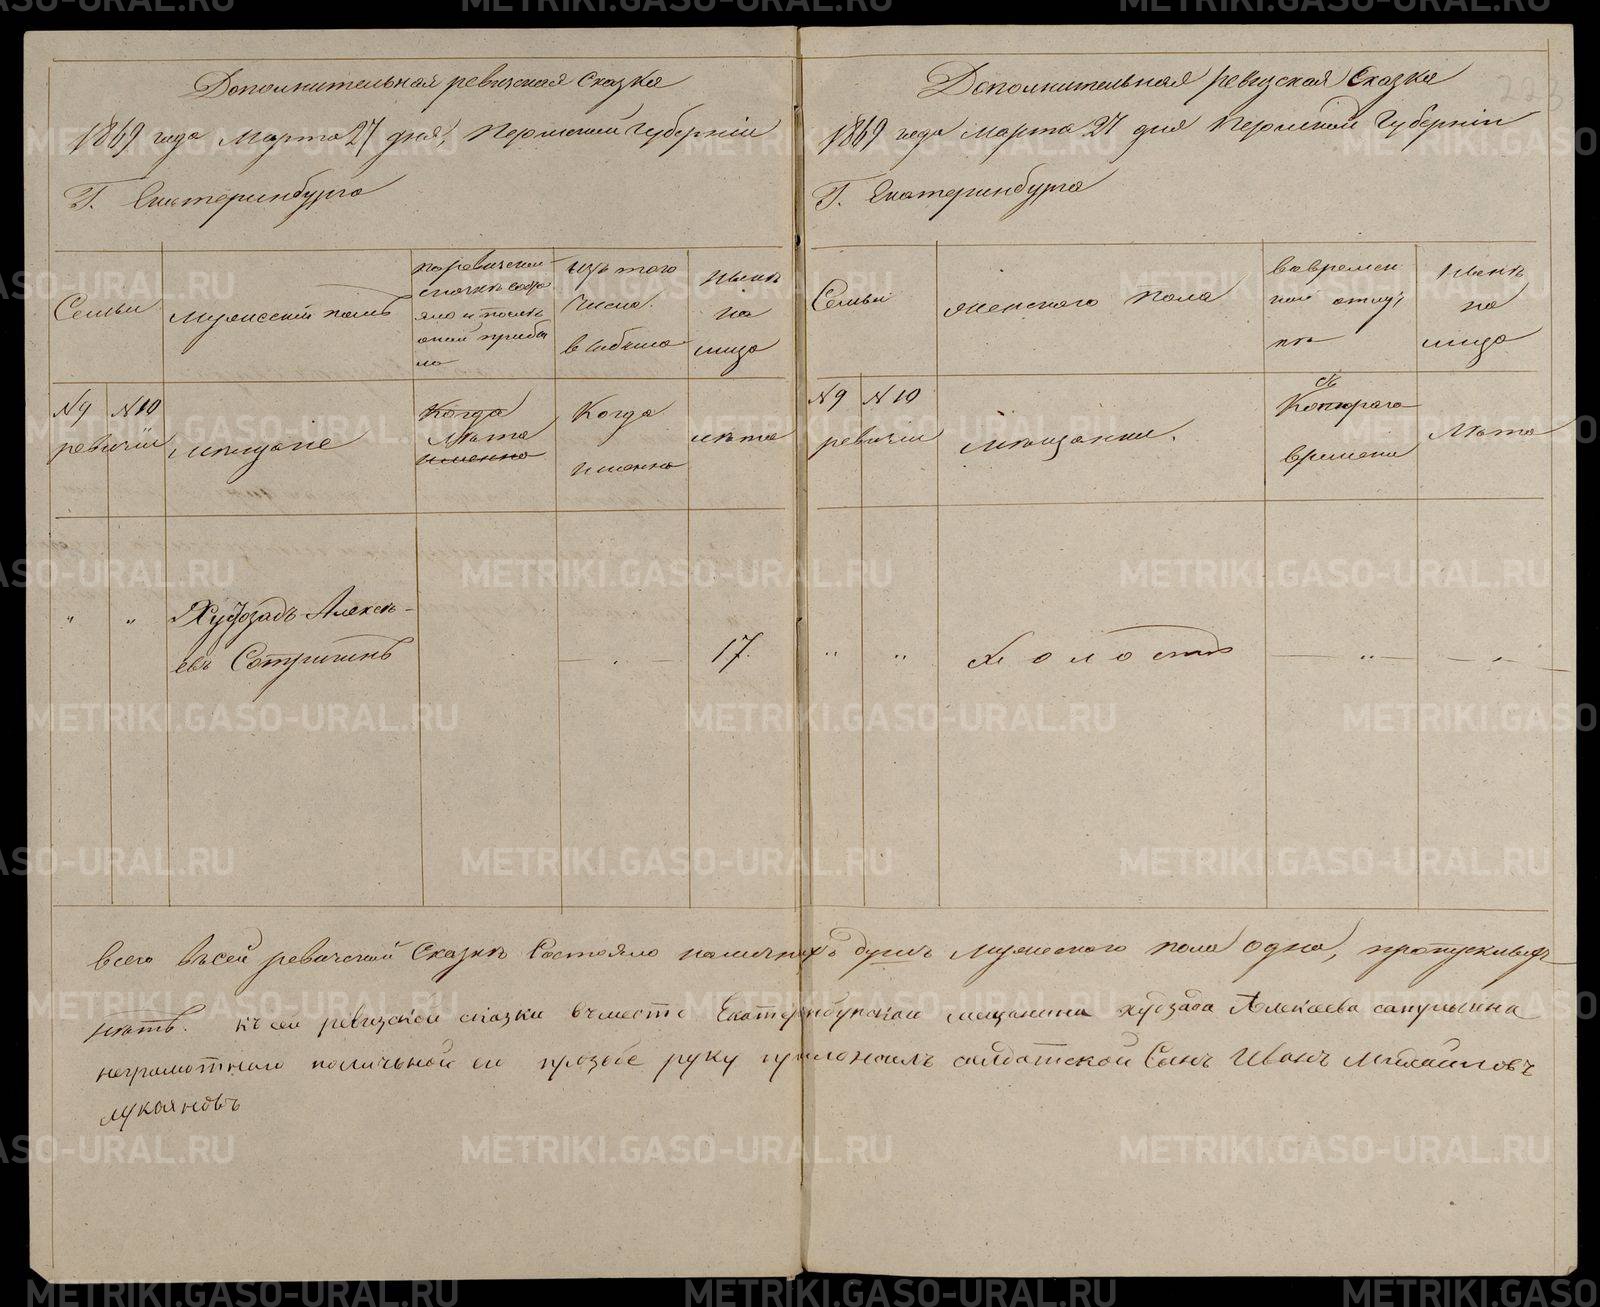 Дополнительная ревизская сказка
1869 года Марта 27 дня, Пермской Губерніи
Г. Екатеринбурга
Семьи
Мужескій полъ
по ревизской
сказкѣ состо
яло и послѣ
оной прибы
ло
изъ того
числа
выбыло
Нынѣ
на
лицо
№ 9
№ 10
ревизіи
мещане
Когда
Лѣта
именно
Когда
именно
лѣта
„ „ Худозадъ Алексѣ-
евъ Сотринъ 17.
Дополнительная ревизская Сказка
1869 года Марта 27 дня Пермской Губерніи
Г. Екатеринбурга
Семьи
женского пола
во времен
ной отлуч
кѣ
Нынѣ
на
лицо
№ 9
№ 10
ревизіи
мѣщанки.
съ
Которого
времени
Лѣта
„ „ Холостъ „ „
Всего въ сей ревизской Сказкѣ Состояло наличныхъ душъ Мужеского пола одна, пропускныхъ
нѣтъ. Къ сей ревизской сказки вместо Екатеринбурской мещанина худзада Алексева
неграмотнаго поличьной ево прозбе руку приложилъ салдатской Сынъ Иванъ Михаиловъ
Лукояновъ
METRIKI.GASO-URAL.RU